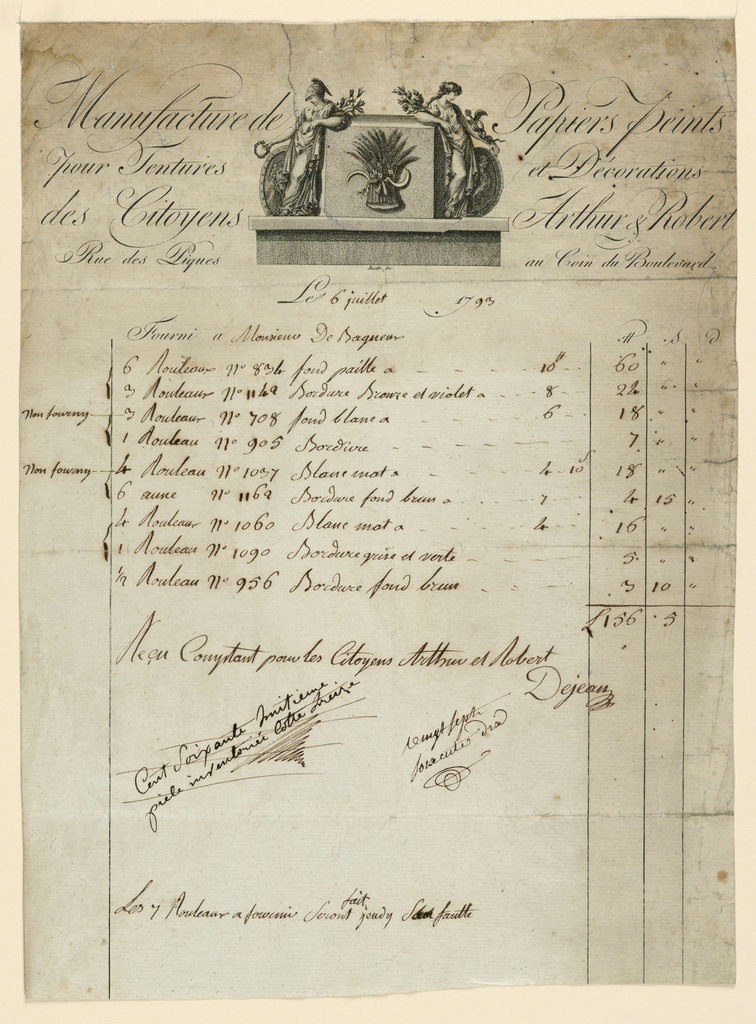 Manufacture de Papiers Peints
pour Tentures et Décorations
des Citoyens Arthur & Robert
Rue des Piques au Coin du Boulevard
Le 6 juillet 1793
Fourni a Monsieur De Bagneux
₶ S d
6 Rouleaux No 834 fond paille a 10₶ 60 " "
3 Rouleaux No 1142 Bordure Bronze et violet a 8 24 " "
Non fourny 3 Rouleaux No 708 fond blanc a 6 18 " "
1 Rouleau No 905 Bordure 7 " "
Non fourny 4 Rouleau No 1037 Blanc mat a 4 10s 18 " "
6 aune No 1162 Bordure fond brun a 7 4 15 "
4 Rouleaux No 1060 Blanc mat a 4 16 " "
1 Rouleau No 1090 Bordure grise et verte 5 " "
1/2 Rouleau No 956 Bordure fond brun 3 10 "
£156 5
Reçu Comptant pour les Citoyens Arthur et Robert
Dejean
Cent Soixante huitieme
piece inventoriée Cotte treize
vingt sept
Les 7 Rouleaux a fournir Seront fait jeudy faultte